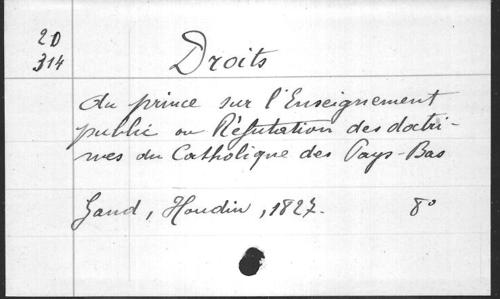 2D
314
Droits
du prince sur l'Enseignement
public ou Réfutation des doctri-
nes du Catholique des Pays-Bas
Gand, Houdin, 1827. 8°